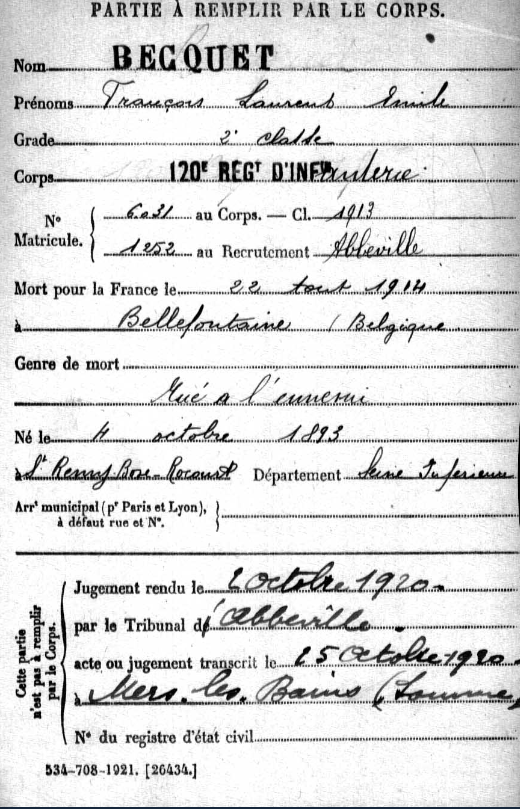 PARTIE À REMPLIR PAR LE CORPS.
Nom BECQUET
Prénoms François Laurent Emile
Grade 2e classe
Corps 120E REGT D'INFanterie
N° Matricule. 6031 au Corps. — Cl. 1913
1252 au Recrutement Abbeville
Mort pour la France le 22 Aout 1914
à Bellefontaine (Belgique
Genre de mort
Tué a l'ennemi
Né le 4 octobre 1893
à St Remy Bosc-Rocourt Département Seine Inferieure
Arrt municipal (pr Paris et Lyon),
à défaut rue et N°.
Cette partie n'est pas à remplir par le Corps.
Jugement rendu le 2 Octobre 1920
par le Tribunal d'Abbeville
acte ou jugement transcrit le 25 Octobre 1920
à Mers-les-Bains (Somme)
N° du registre d'état civil
534-708-1921. [26434.]